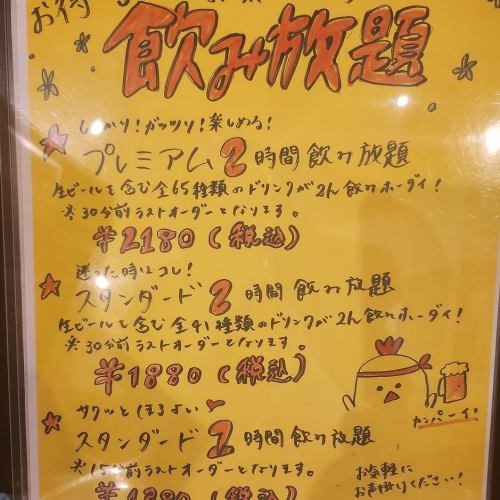 お待
飲み放題
しっかり!ガッツリ!楽しめる!
プレミアム2時間飲み放題
生ビールを含む全65種類のドリンクが2h飲みホーダイ!
※30分前ラストオーダーとなります。
¥2180(税込)
迷った時はコレ!
スタンダード2時間飲み放題
生ビールを含む全41種類のドリンクが2h飲みホーダイ!
※30分前ラストオーダーとなります。
¥1880(税込)
カンパーイ!
サクッとほろよい
スタンダード2時間飲み放題
※15分前ラストオーダーとなります。
お気軽に
お声掛けください!
(税込)